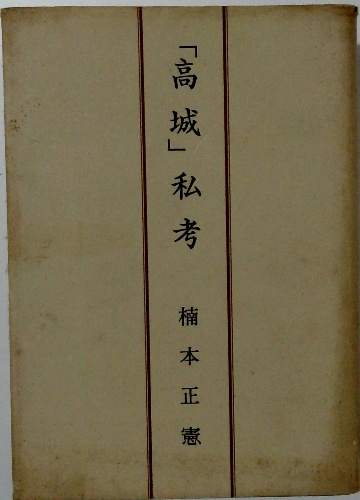 「高城」私考
楠本正憲